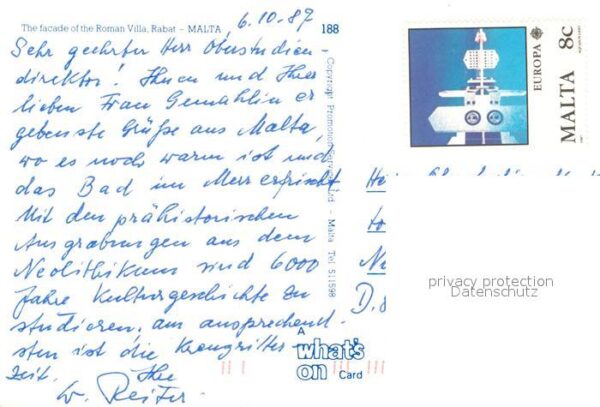 The facade of the Roman Villa, Rabat – MALTA
188
6.10.87
Sehr geehrter Herr Oberstudien-
direktor! Ihnen und Ihrer
lieben Frau Gemahlin er
gebenste Grüße aus Malta,
wo es noch warm ist und
das Bad im Meer erfrischt
Mit den prähistorischen
Ausgrabungen aus dem
Neolithikum sind 6000
Jahre Kulturgeschichte zu
studieren, am ansprechend-
sten ist die Kreuzritter-
zeit. Ihr
W. Reiter
Copyright Promotion Services Ltd – Malta Tel 511598
EUROPA
MALTA 8c
privacy protection
Datenschutz
A
what's
on Card